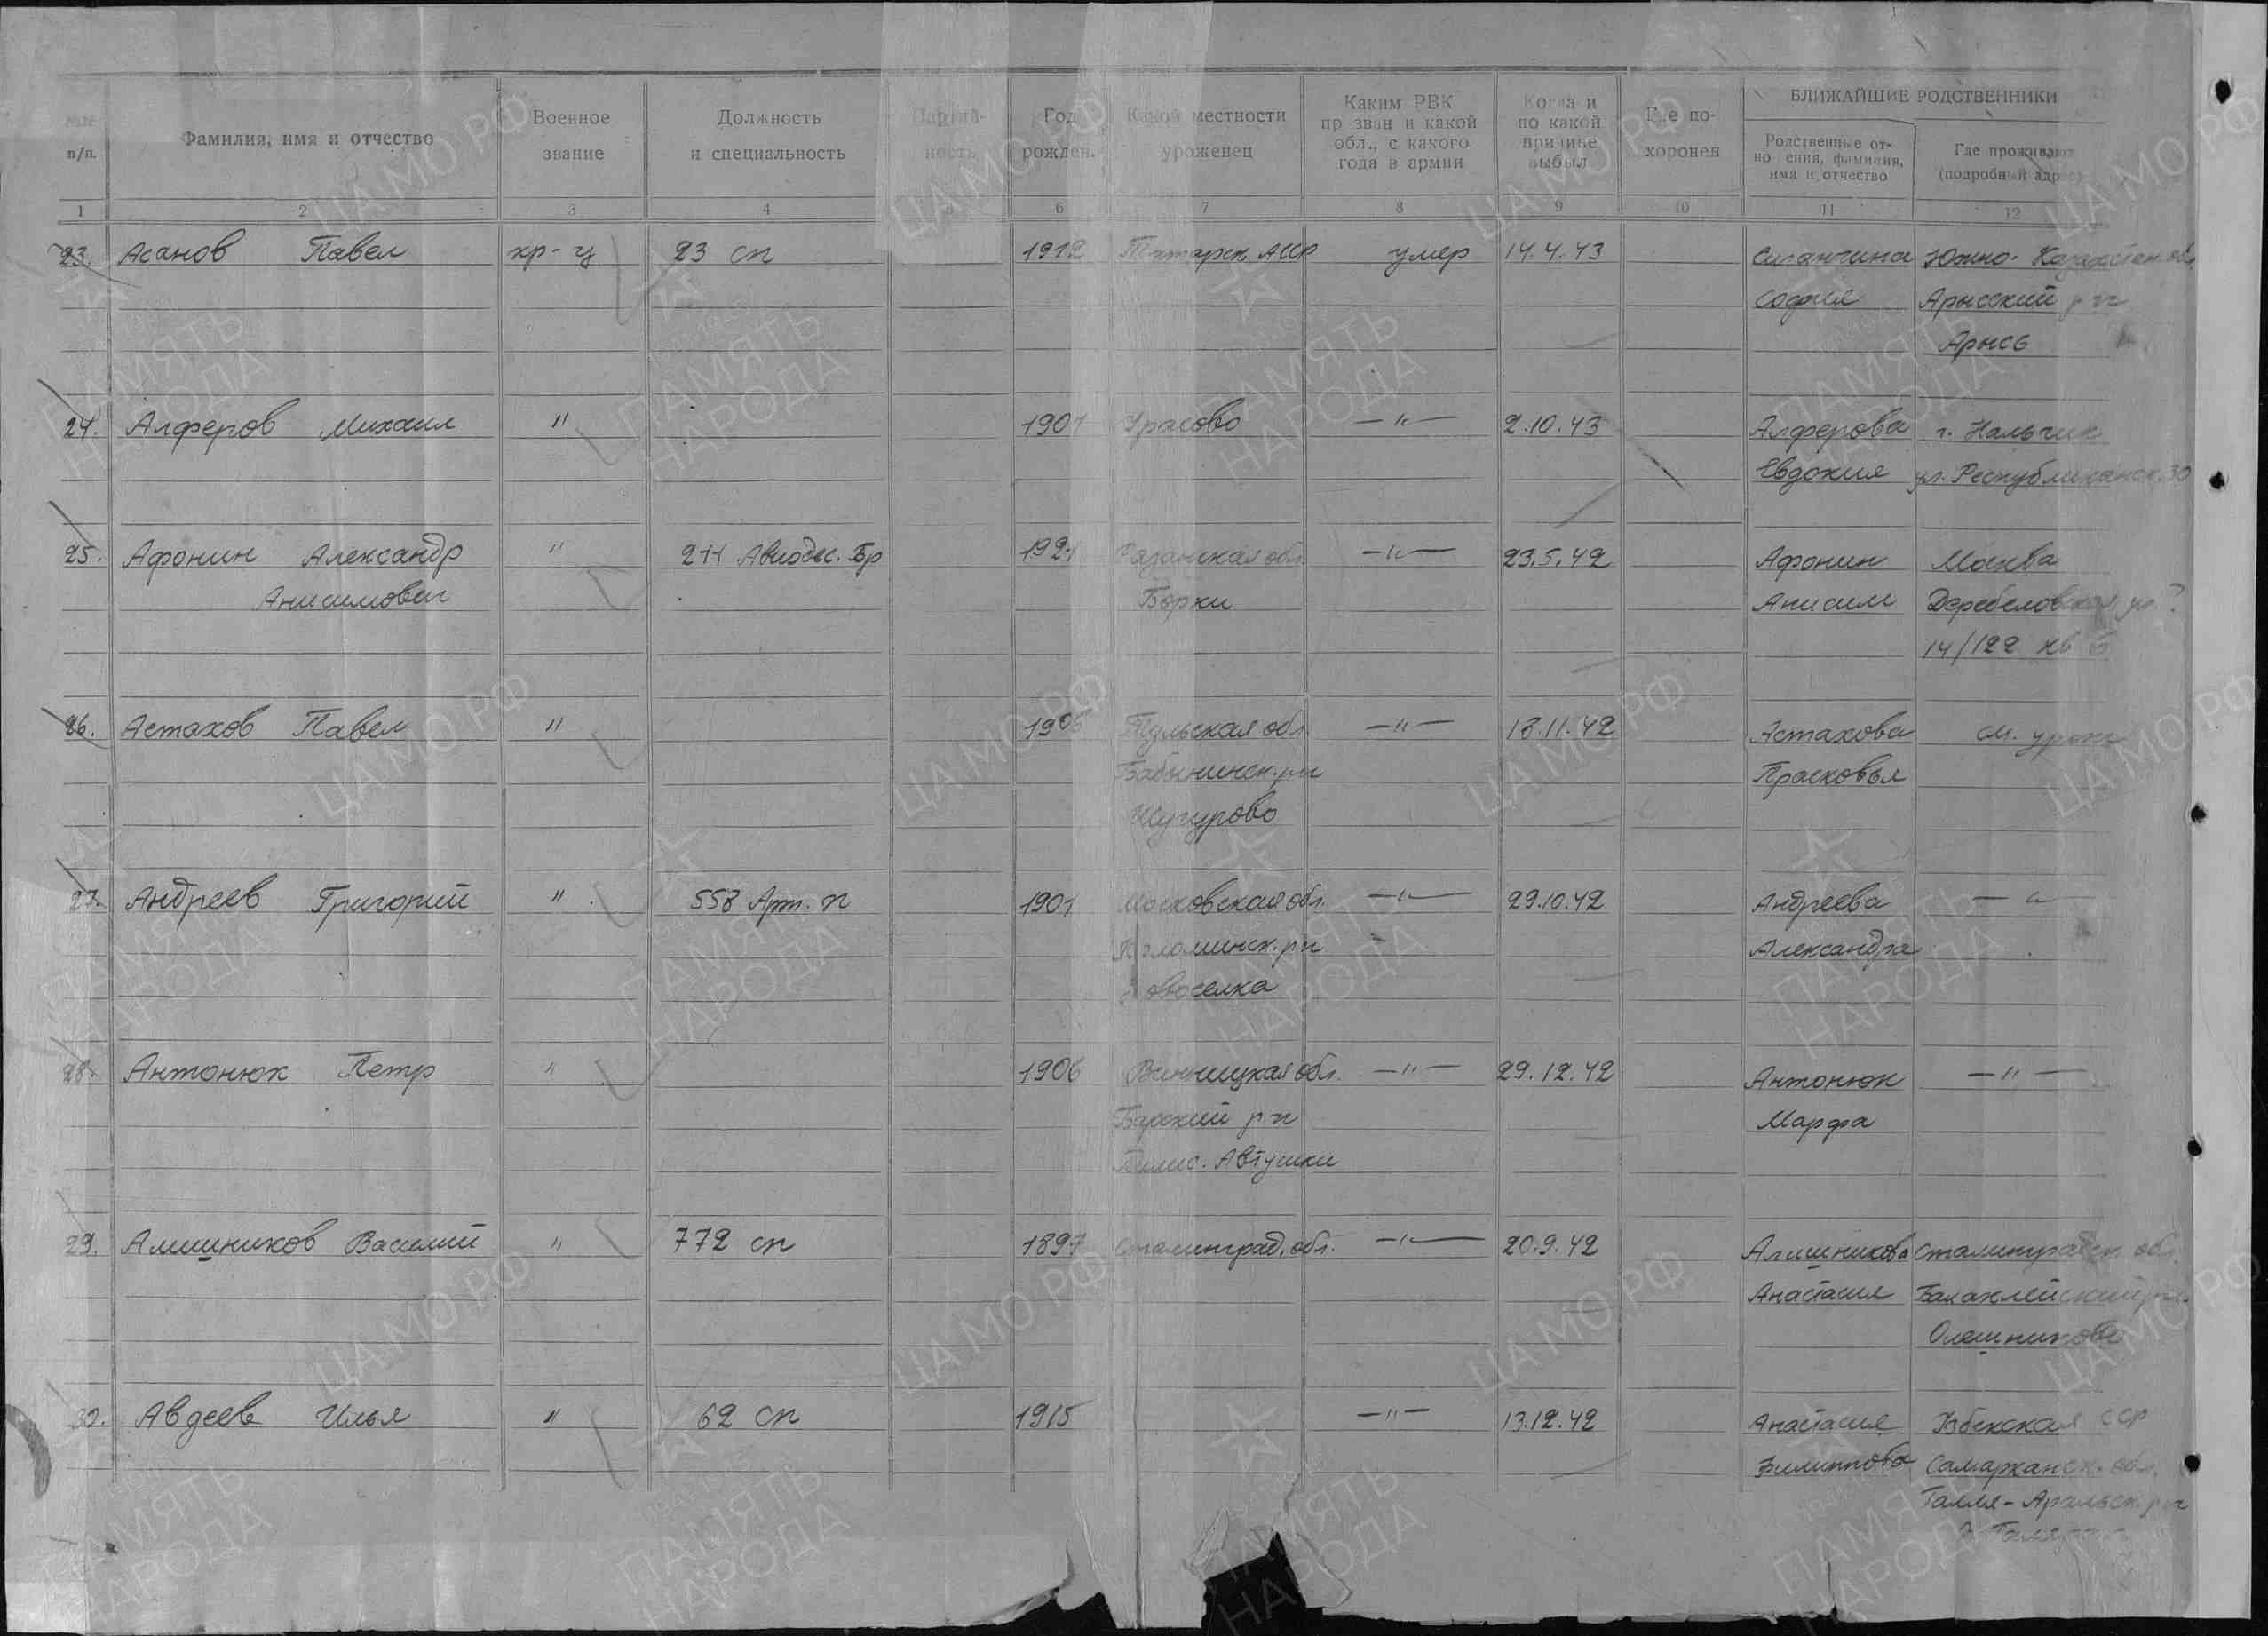 №№ п/п.
Фамилия, имя и отчество
Военное звание
Должность и специальность
Партий- ность
Год рожден.
Какой местности уроженец
Каким РВК пр зван и какой обл., с какого года в армии
Когда и по какой причине выбыл
Где по- хоронен
БЛИЖАЙШИЕ РОДСТВЕННИКИ
Родственные от- но ения, фамилия, имя и отчество
Где проживают (подробный адрес)
1 2 3 4 6 7 8 9 10 11 12
23. Асанов Павел кр-ц 23 сп 1912 Татарск АССР умер 14.4.43 Южно-Казахстан. обл.
София Арысский р-н
Арысь
24. Алферов Михаил " 1901 Урасово —"— 2.10.43 Алферова г. Нальчик
Евдокия ул. Республиканск. 30
25. Афонин Александр " 211 Авиодес. Бр 1921 Рязанская обл. —"— 23.5.42 Афонин Москва
Анисимович Борки Анисим ул. ?
14/122 кв
26. Астахов Павел " 1906 Тульская обл —"— 18.11.42 Астахова см. урож
Бабынинск. р-н Прасковья
Шугурово
27. Андреев Григорий " 558 Арт. п 1901 Московская обл. —"— 29.10.42 Андреева —"—
Коломинск. р-н Александра
Новоселка
28. Антонюк Петр " 1906 Винницкая обл. —"— 29.12.42 Антонюк —"—
Барский р-н Марфа
Автушки
29. Алишников Василий " 772 сп 1897 Сталинград. обл. —"— 20.9.42 Алишникова Сталинградск. обл.
Анастасия Балаклейский р-н.
Олешниково
30. Авдеев Илья " 62 сп 1915 —"— 13.12.42 Анастасия Узбекская ССР
Филиппова Самаркандск. обл.
Галля-Аральск р-н
ПАМЯТЬ НАРОДА
ЦА МО РФ